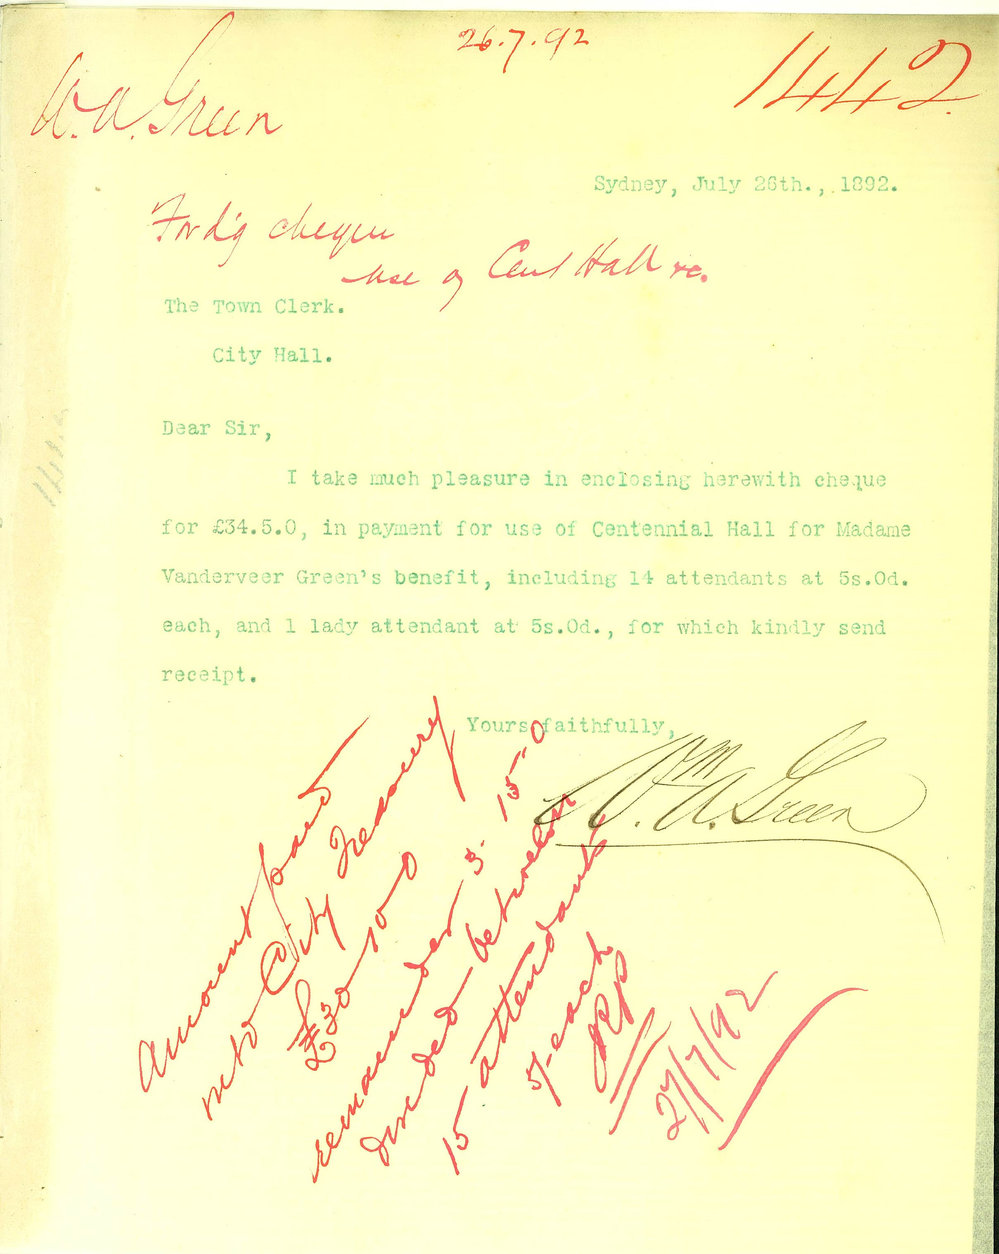 26.7.92
W. A. Green
1442
Sydney, July 26th., 1892.
Ford'g cheque
use of Cent Hall &c.
The Town Clerk.
City Hall.
Dear Sir,
I take much pleasure in enclosing herewith cheque
for £34.5.0, in payment for use of Centennial Hall for Madame
Vanderveer Green's benefit, including 14 attendants at 5s.0d.
each, and 1 lady attendant at 5s.0d., for which kindly send
receipt.
Yours faithfully,
Wm. A. Green
Amount paid
into City Treasury
£30-10-0
remainder 3.15.0
divided between
15 attendants
5/- each
27/7/92